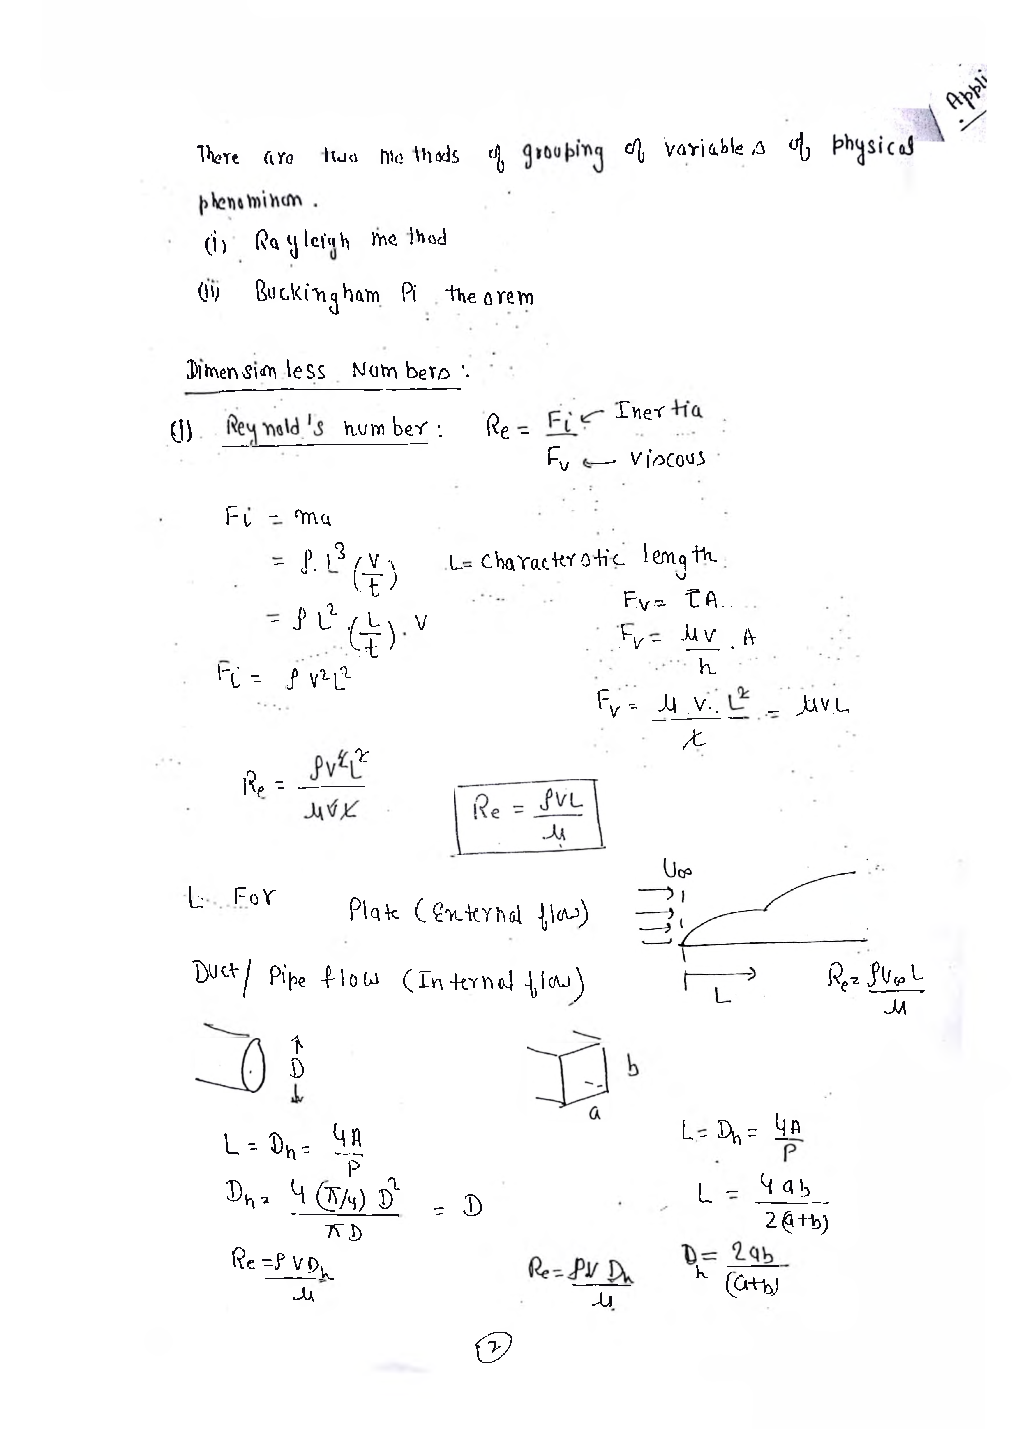 Appli
There are two methods of grouping of variables of physical
phenominon.
(i) Rayleigh method
(ii) Buckingham Pi theorem
Dimensionless Numbers :
(1) Reynold's number : Re = Fi ← Inertia
Fv ← Viscous
Fi = ma
= ρ. L³ (V/t) L = Characterstic length
= ρ L² (L/t). V
Fv = τA
Fv = μV/h . A
Fi = ρ V² L²
Fv = μ V. L²/L = μVL
Re = ρV²L²/μVL
Re = ρVL/μ
U∞
L For Plate (External flow)
Duct/ Pipe flow (Internal flow)
L
Re = ρU∞L/μ
D
b
a
L = Dh = 4A/P
L = Dh = 4A/P
Dh = 4 (π/4) D²/πD = D
L = 4ab/2(a+b)
Re = ρVDh/μ
Re = ρV Dh/μ
Dh = 2ab/(a+b)
2